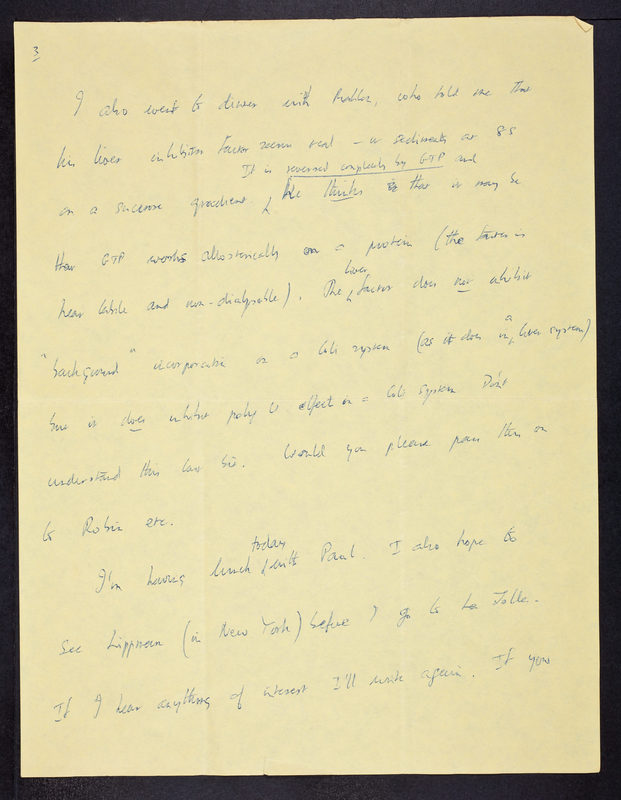 3
I also went to dinner with Mahler, who told me that
his liver inhibitor factor seems real – it sediments at 8S
on a sucrose gradient. It is reversed completely by GTP and he thinks is that it may be
that GTP works allosterically on a protein (the factor is
heat labile and non-dialysable). The liver factor does not inhibit
"background" incorporation in a Coli system (as it does in a liver system)
but it does inhibit poly U effect in a Coli system Don't
understand this last bit. Would you please pass this on
to Robin etc.
I'm having lunch today with Paul. I also hope to
see Lippman (in New York) before I go to La Jolla.
If I hear anything of interest I'll write again. If you